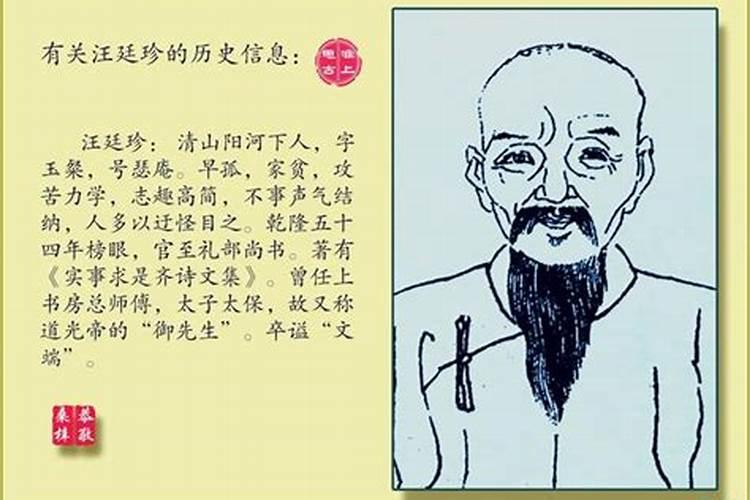 有关汪廷珍的历史信息：
淮上
思古
汪廷珍： 清山阳河下人，字
玉粲，号瑟庵。早孤，家贫，攻
苦力学，志趣高简，不事声气结
纳，人多以迂怪目之。乾隆五十
四年榜眼，官至礼部尚书。著有
《实事求是齐诗文集》。曾任上
书房总师傅，太子太保，故又称
道光帝的“御先生”。卒谥“文
端”。
恭敬
桑梓